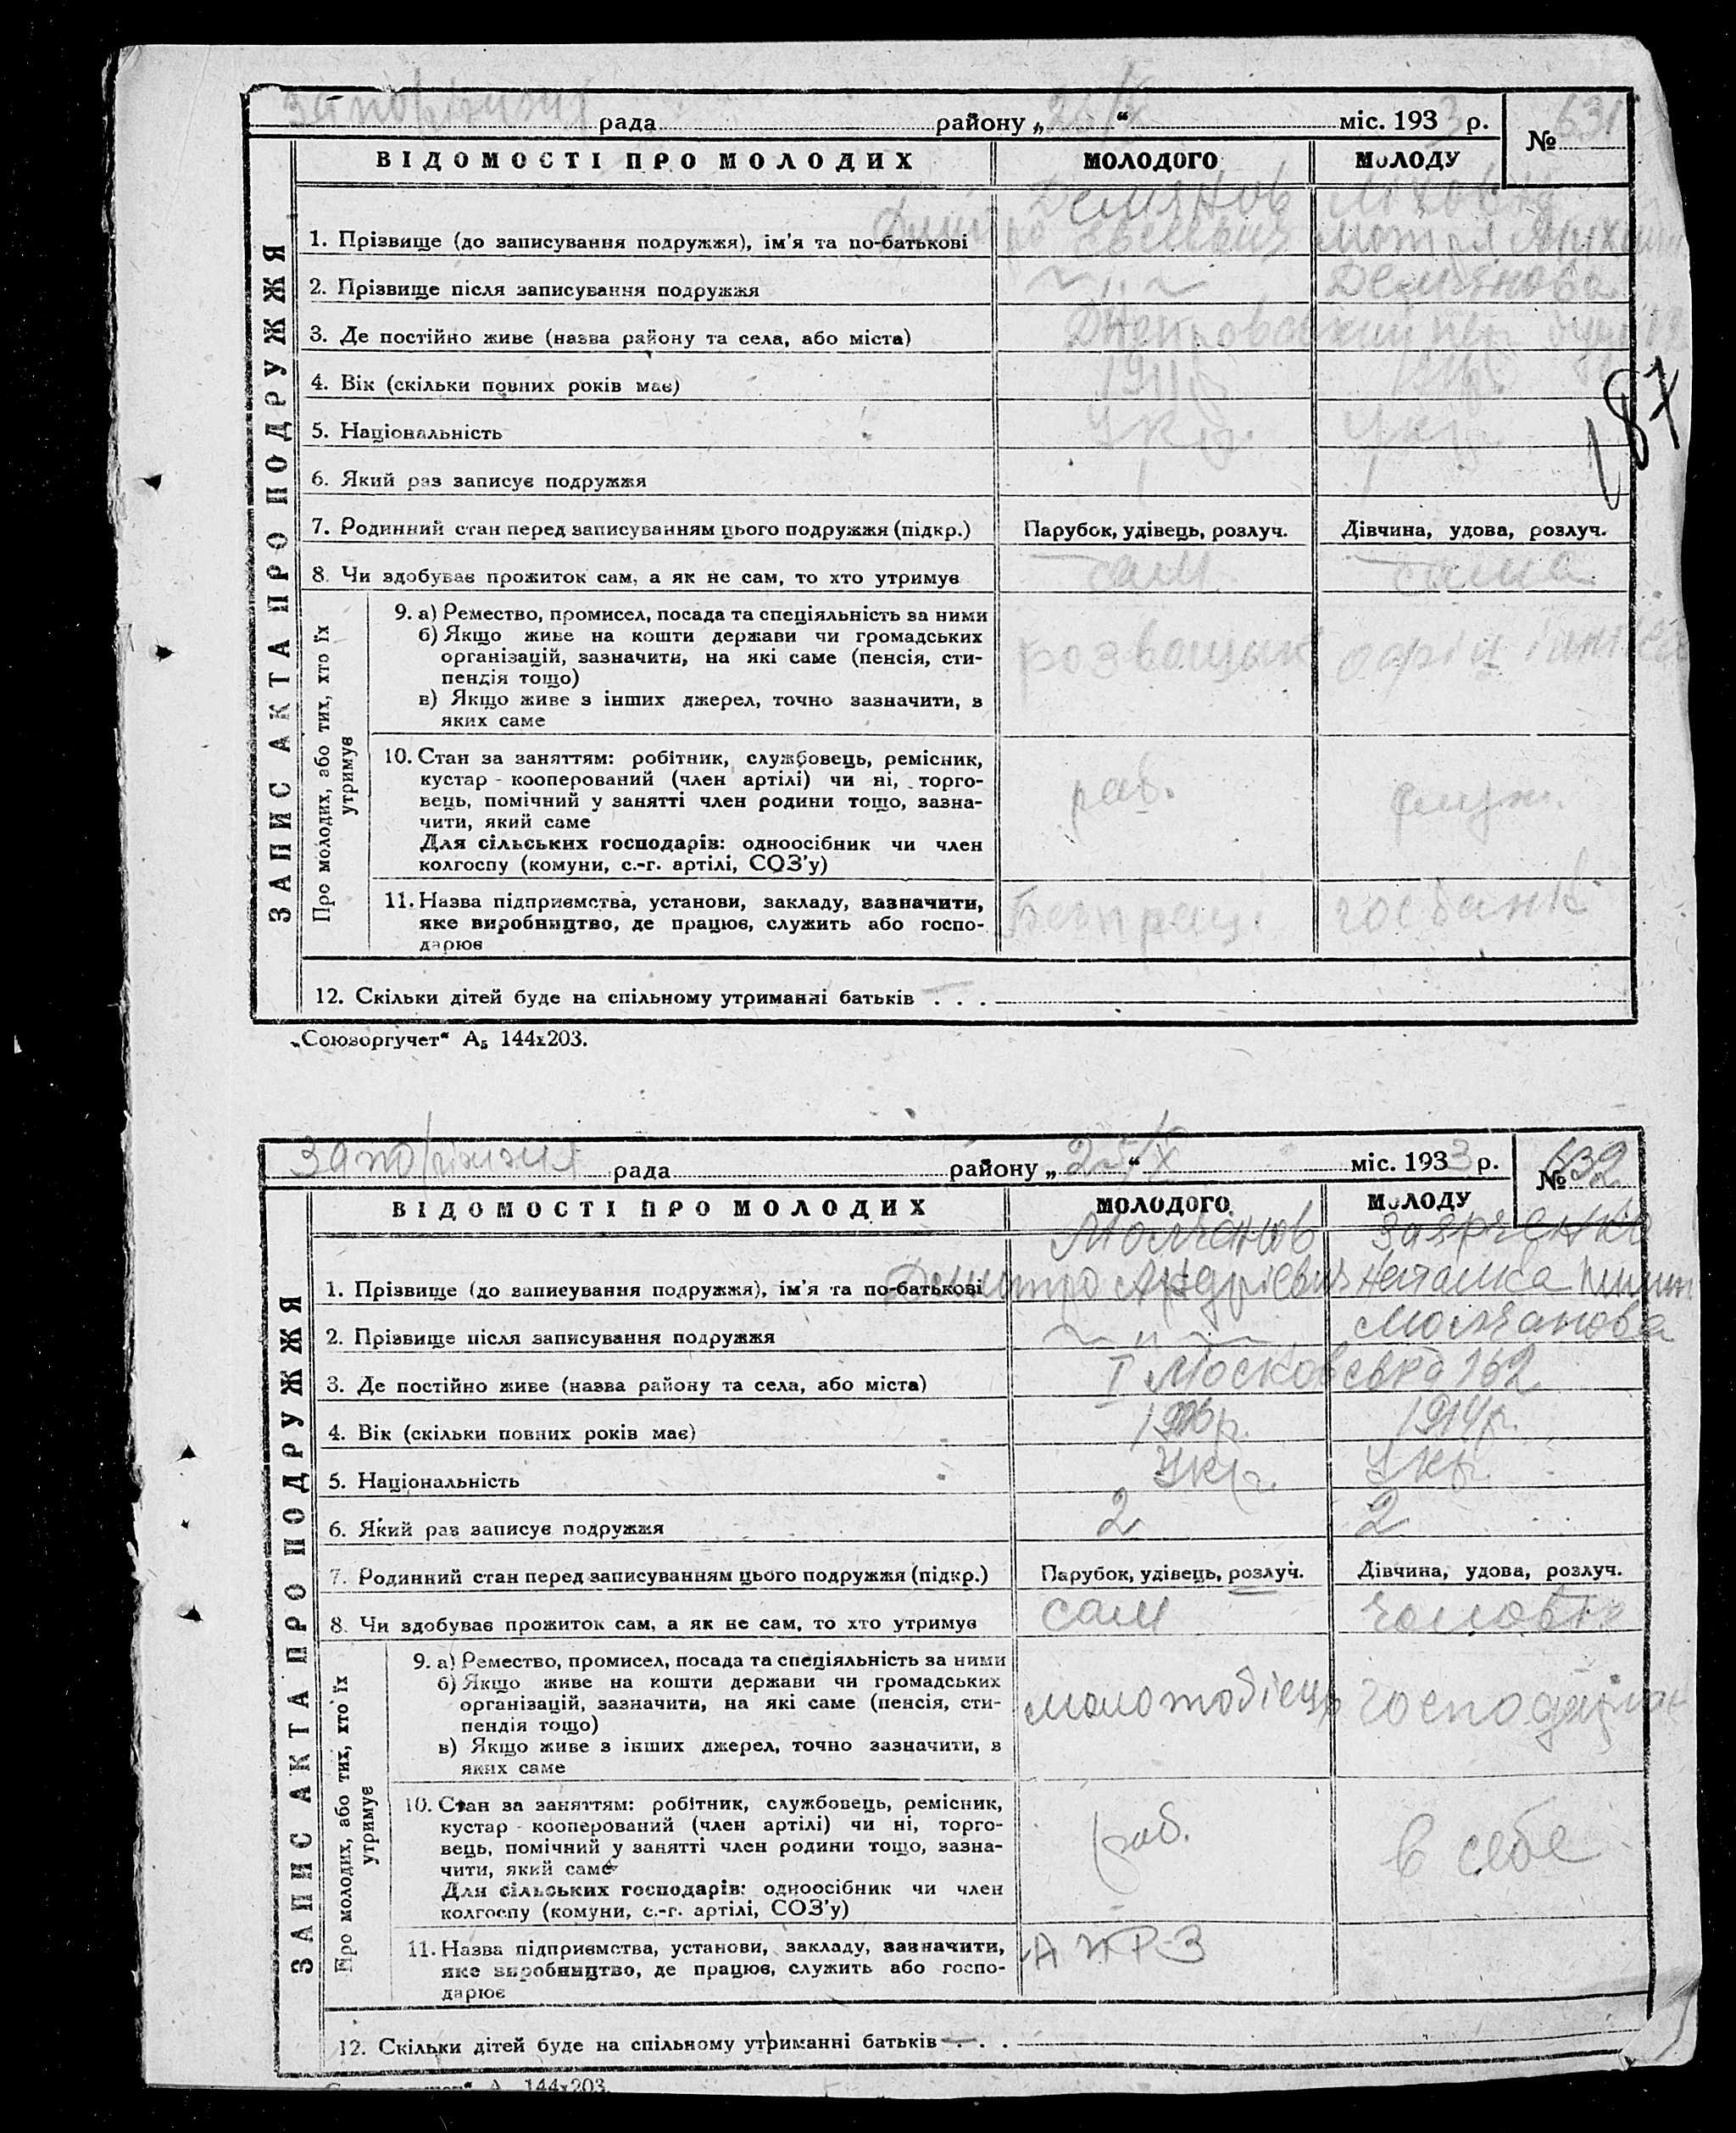 Запоріжжя рада району „25/X“ міс. 1933 р. № 631
ВІДОМОСТІ ПРО МОЛОДИХ МОЛОДОГО МОЛОДУ
Демянов
1. Прізвище (до записування подружжя), ім'я та по-батькові Дмитро Мотря
2. Прізвище після записування подружжя ~ „ ~ Демянова
3. Де постійно живе (назва району та села, або міста)
4. Вік (скільки повних років має) 1911р
5. Національність Укр. Укр.
6. Який раз записує подружжя 1 1
7. Родинний стан перед записуванням цього подружжя (підкр.) Парубок, удівець, розлуч. Дівчина, удова, розлуч.
8. Чи здобуває прожиток сам, а як не сам, то хто утримує сам сама
9. а) Ремество, промисел, посада та спеціяльність за ними
б) Якщо живе на кошти держави чи громадських
організацій, зазначити, на які саме (пенсія, сти-
пендія тощо)
в) Якщо живе з інших джерел, точно зазначити, з
яких саме
розващик
10. Стан за заняттям: робітник, службовець, ремісник,
кустар - кооперований (член артілі) чи ні, торго-
вець, помічний у занятті член родини тощо, зазна-
чити, який саме
Для сільських господарів: одноосібник чи член
колгоспу (комуни, с.-г. артілі, СОЗ'у)
раб. служ.
11. Назва підприємства, установи, закладу, зазначити,
яке виробництво, де працює, служить або госпо-
дарює
госбанк
12. Скільки дітей буде на спільному утриманні батьків . . . —
ЗАПИС АКТА ПРО ПОДРУЖЖЯ
Про молодих, або тих, хто їх
утримує
187
„Союзоргучет“ А₅ 144х203.
Запоріжжя рада району „25/X“ міс. 1933 р. № 632
ВІДОМОСТІ ПРО МОЛОДИХ МОЛОДОГО МОЛОДУ
Молчанов Заярченко
1. Прізвище (до записування подружжя), ім'я та по-батькові Дмитро Андрієвич Наталка
2. Прізвище після записування подружжя ~ „ ~ Молчанова
3. Де постійно живе (назва району та села, або міста) I Московська 162
4. Вік (скільки повних років має) 1914р.
5. Національність Укр. Укр.
6. Який раз записує подружжя 2 2
7. Родинний стан перед записуванням цього подружжя (підкр.) Парубок, удівець, розлуч. Дівчина, удова, розлуч.
8. Чи здобуває прожиток сам, а як не сам, то хто утримує сам чоловік
9. а) Ремество, промисел, посада та спеціяльність за ними
б) Якщо живе на кошти держави чи громадських
організацій, зазначити, на які саме (пенсія, сти-
пендія тощо)
в) Якщо живе з інших джерел, точно зазначити, з
яких саме
молотобієць
10. Стан за заняттям: робітник, службовець, ремісник,
кустар - кооперований (член артілі) чи ні, торго-
вець, помічний у занятті член родини тощо, зазна-
чити, який саме
Для сільських господарів: одноосібник чи член
колгоспу (комуни, с.-г. артілі, СОЗ'у)
роб. в себе
11. Назва підприємства, установи, закладу, зазначити,
яке виробництво, де працює, служить або госпо-
дарює
ПРЗ
12. Скільки дітей буде на спільному утриманні батьків — . . .
ЗАПИС АКТА ПРО ПОДРУЖЖЯ
Про молодих, або тих, хто їх
утримує
144х203.